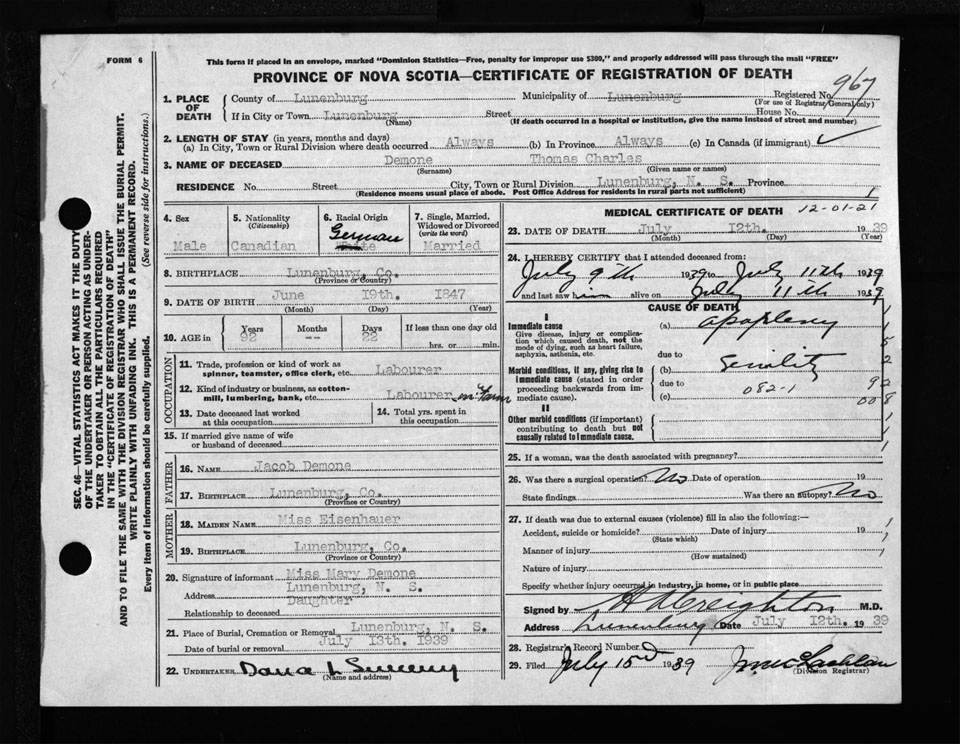 FORM 6
This form if placed in an envelope, marked "Dominion Statistics—Free, penalty for improper use $300," and properly addressed will pass through the mail "FREE"
PROVINCE OF NOVA SCOTIA—CERTIFICATE OF REGISTRATION OF DEATH
967
1. PLACE OF DEATH County of Lunenburg Municipality of Lunenburg Registered No.
(For use of Registrar General only)
If in City or Town Lunenburg Street House No.
(Name) (If death occurred in a hospital or institution, give the name instead of street and number)
2. LENGTH OF STAY (in years, months and days)
(a) In City, Town or Rural Division where death occurred Always (b) In Province Always (c) In Canada (if immigrant)
3. NAME OF DECEASED Demone Thomas Charles
(Surname) (Given name or names)
RESIDENCE No. Street City, Town or Rural Division Lunenburg, N. S. Province
(Residence means usual place of abode. Post Office Address for residents in rural parts not sufficient)
4. Sex Male
5. Nationality (Citizenship) Canadian
6. Racial Origin German White
7. Single, Married, Widowed or Divorced (write the word) Married
8. BIRTHPLACE Lunenburg, Co.
(Province or Country)
9. DATE OF BIRTH June 19th. 1847
(Month) (Day) (Year)
10. AGE in Years 92 Months -- Days 22 If less than one day old
hrs. or min.
OCCUPATION
11. Trade, profession or kind of work as spinner, teamster, office clerk, etc. Labourer
12. Kind of industry or business, as cotton-mill, lumbering, bank, etc. Labourer on Farm
13. Date deceased last worked at this occupation
14. Total yrs. spent in this occupation
15. If married give name of wife or husband of deceased
FATHER
16. NAME Jacob Demone
17. BIRTHPLACE Lunenburg, Co.
(Province or Country)
MOTHER
18. MAIDEN NAME Miss Eisenhauer
19. BIRTHPLACE Lunenburg, Co.
(Province or Country)
20. Signature of informant Miss Mary Demone
Address Lunenburg, N. S.
Relationship to deceased Daughter
21. Place of Burial, Cremation or Removal Lunenburg, N. S.
Date of burial or removal July 13th. 1939
22. UNDERTAKER Dana L Sweeny
(Name and address)
MEDICAL CERTIFICATE OF DEATH 12-01-21
23. DATE OF DEATH July 12th. 1939
(Month) (Day) (Year)
24. I HEREBY CERTIFY that I attended deceased from:
July 9th 1939 to July 11th 1939
and last saw him alive on July 11th 1939
CAUSE OF DEATH
I
Immediate cause
Give disease, injury or complication which caused death, not the mode of dying, such as heart failure, asphyxia, asthenia, etc.
(a) apoplexy
due to
Morbid conditions, if any, giving rise to immediate cause (stated in order proceeding backwards from immediate cause).
(b) Senility
due to 082-1
(c)
II
Other morbid conditions (if important) contributing to death but not causally related to immediate cause.
25. If a woman, was the death associated with pregnancy?
26. Was there a surgical operation? No Date of operation 19
State findings Was there an autopsy? No
27. If death was due to external causes (violence) fill in also the following:—
Accident, suicide or homicide? Date of injury 19
(State which)
Manner of injury
(How sustained)
Nature of injury
Specify whether injury occurred in industry, in home, or in public place
Signed by H A Creighton M.D.
Address Lunenburg Date July 12th. 1939
28. Registrar's Record Number
29. Filed July 15 1939 J. McLachlan
(Division Registrar)
SEC. 46—VITAL STATISTICS ACT MAKES IT THE DUTY
OF THE UNDERTAKER OR PERSON ACTING AS UNDER-
TAKER TO OBTAIN ALL THE PARTICULARS REQUIRED
IN THE "CERTIFICATE OF REGISTRATION OF DEATH"
AND TO FILE THE SAME WITH THE DIVISION REGISTRAR WHO SHALL ISSUE THE BURIAL PERMIT.
WRITE PLAINLY WITH UNFADING INK. THIS IS A PERMANENT RECORD.
Every item of information should be carefully supplied. (See reverse side for instructions.)